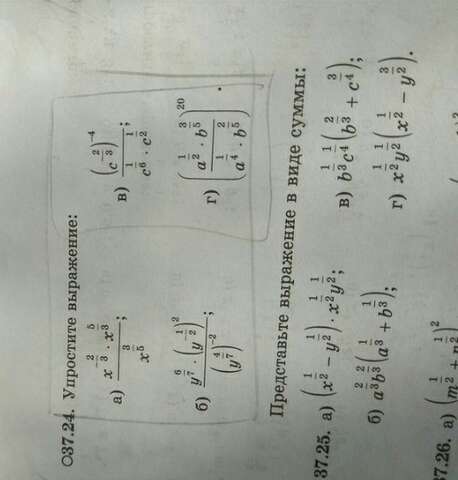 ○37.24. Упростите выражение:
а) \frac{x^{-\frac{2}{3}} \cdot x^{\frac{5}{3}}}{x^{\frac{3}{5}}};  в) \frac{\left(c^{-\frac{2}{3}}\right)^{-4}}{c^{\frac{1}{6}} \cdot c^{\frac{1}{2}}};
б) \frac{y^{\frac{6}{7}} \cdot \left(y^{-\frac{1}{2}}\right)^{2}}{\left(y^{\frac{4}{7}}\right)^{-2}};  г) \left(\frac{a^{\frac{1}{2}} \cdot b^{\frac{3}{5}}}{a^{\frac{1}{4}} \cdot b^{\frac{2}{5}}}\right)^{20}.
Представьте выражение в виде суммы:
37.25. а) \left(x^{\frac{1}{2}} - y^{\frac{1}{2}}\right) \cdot x^{\frac{1}{2}}y^{\frac{1}{2}};  в) b^{\frac{1}{3}}c^{\frac{1}{4}}\left(b^{\frac{2}{3}} + c^{\frac{3}{4}}\right);
б) a^{\frac{2}{3}}b^{\frac{2}{3}}\left(a^{\frac{1}{3}} + b^{\frac{1}{3}}\right);  г) x^{\frac{1}{2}}y^{\frac{1}{2}}\left(x^{\frac{1}{2}} - y^{\frac{3}{2}}\right).
37.26. а) \left(m^{\frac{1}{2}} + n^{\frac{1}{2}}\right)^{2}